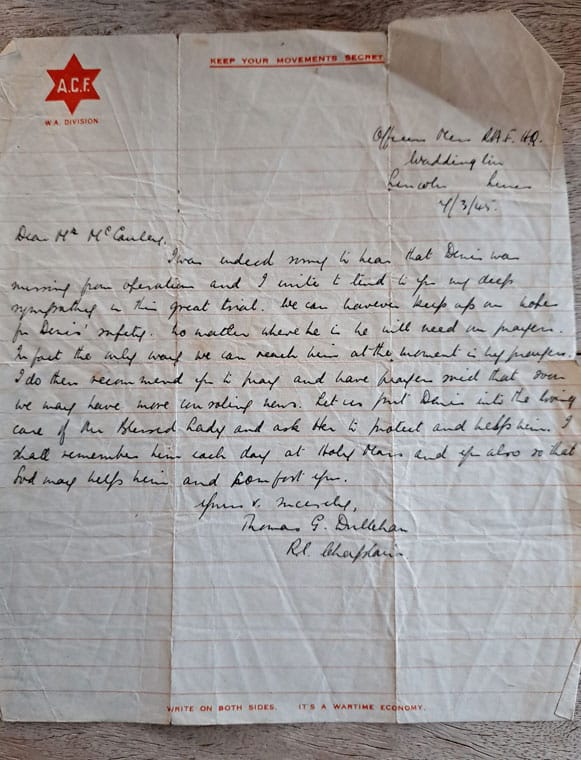 KEEP YOUR MOVEMENTS SECRET
A.C.F.
W.A. DIVISION
Officers Mess RAF. H.Q.
Waddington
Lincoln Lincs
7/3/45.
Dear Mr McCauley,
I was indeed sorry to hear that Denis was
missing from operations and I write to tend to you my deep
sympathy in this great trial. We can however keep up our hopes
for Denis' safety. No matter where he is he will need our prayers.
In fact the only way we can reach him at the moment is by prayers.
I do then recommend you to pray and have prayers said that soon
we may have more consoling news. Let us put Denis into the loving
care of Our Blessed Lady and ask Her to protect and help him. I
shall remember him each day at Holy Mass and you also so that
God may help him and comfort you.
Yours v. sincerely,
Thomas G. Dullehan
R.C. Chaplain.
WRITE ON BOTH SIDES. IT'S A WARTIME ECONOMY.